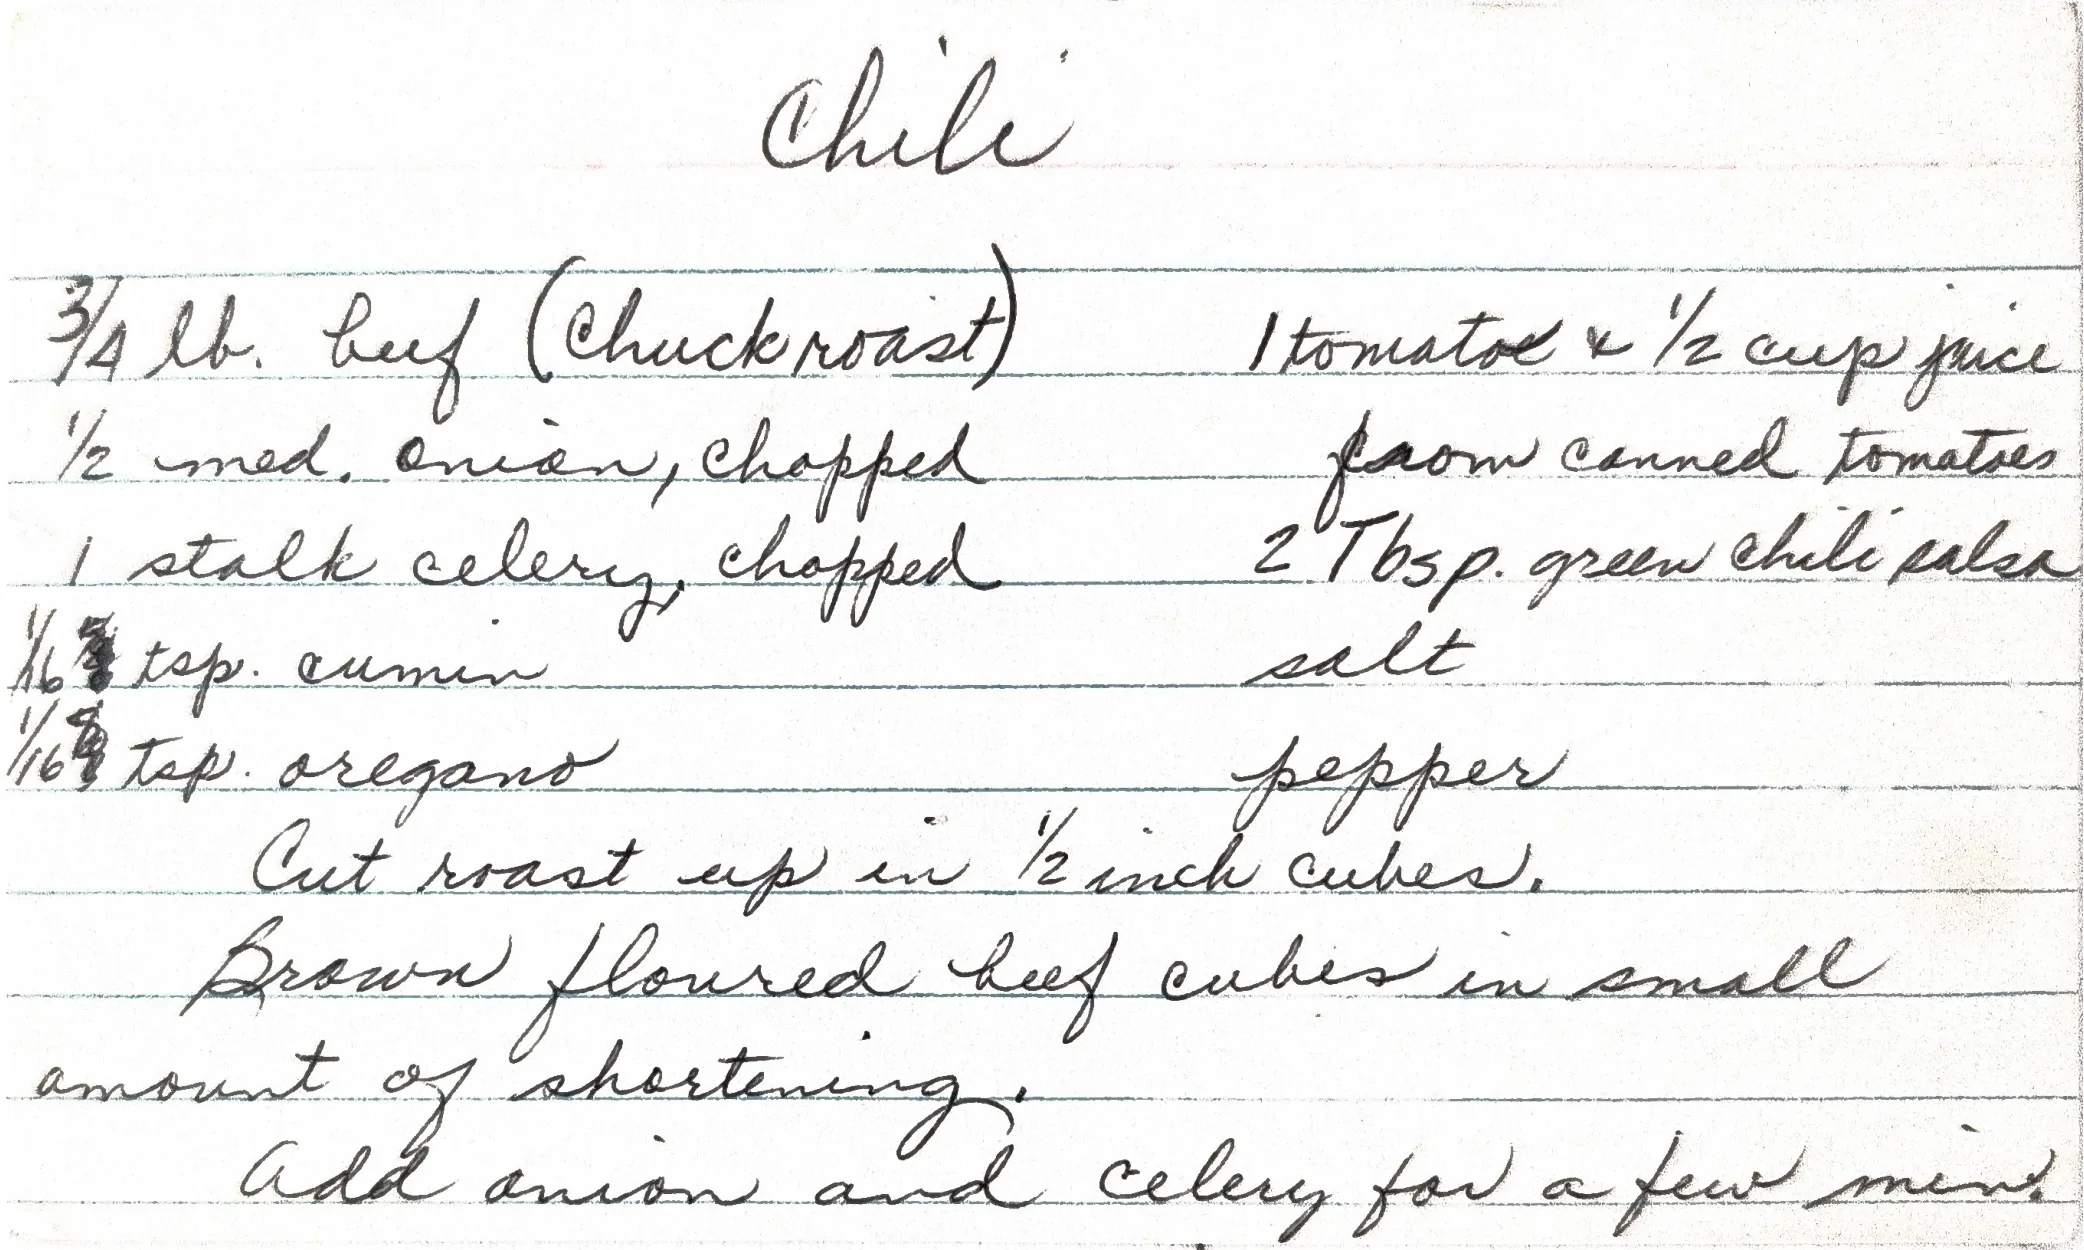 Chili
3/4 lb. beef (Chuck roast)
1/2 med. onion, chopped
1 stalk celery, chopped
1/16 tsp. cumin
1/16 tsp. oregano
1 tomatoe & 1/2 cup juice
from canned tomatoes
2 Tbsp. green chili salsa
salt
pepper
Cut roast up in 1/2 inch cubes.
Brown floured beef cubes in small
amount of shortening.
Add onion and celery for a few min.